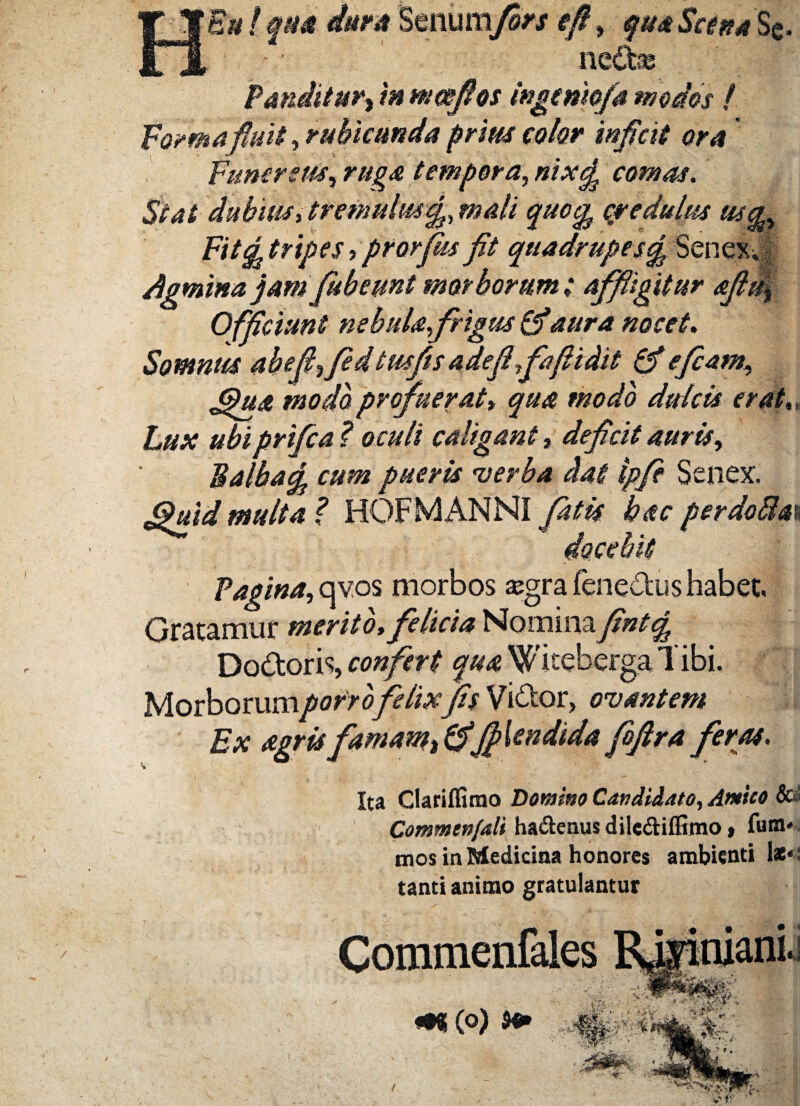 HEu! quæ dura Senum ſors eſt, quæ Scena Se-
nectæ
Panditur, in mœſtos ingenioſa modos!
Forma fluit, rubicunda prius color inficit ora
Funereus, ruga tempora, nixq́; comas.
Stat dubius, tremulusq́;, mali quoq́; credulus usq́;,
Fitq́; tripes, prorſus fit quadrupesq́; Senex.
Agmina jam ſubeunt morborum: affligitur æſtu,
Officiunt nebulæ, frigus & aura nocet.
Somnus abeſt, ſed tusſis adeſt, faſtidit & eſcam,
Quæ modò profuerat, quæ modò dulcis erat.
Lux ubi priſca? oculi caligant, deficit auris,
Balbaq́; cum pueris verba dat ipſe Senex.
Quid multa? HOFMANNI ſatis hæc perdocta
docebit
Pagina, qvos morbos ægra ſenectus habet.
Gratamur meritò, felicia Nomina ſintq́;
Doctoris, confert quæ Witeberga Tibi.
Morborum porrò felix ſis Victor, ovantem
Ex ægris famam, & ſplendida foſtra feras.
Ita Clariſſimo Domino Candidato, Amico &
Commenſali hactenus dilectiſſimo, ſum-
mos in Medicina honores ambienti læ-
tanti animo gratulantur
Commenſales Riviniani.
(o)